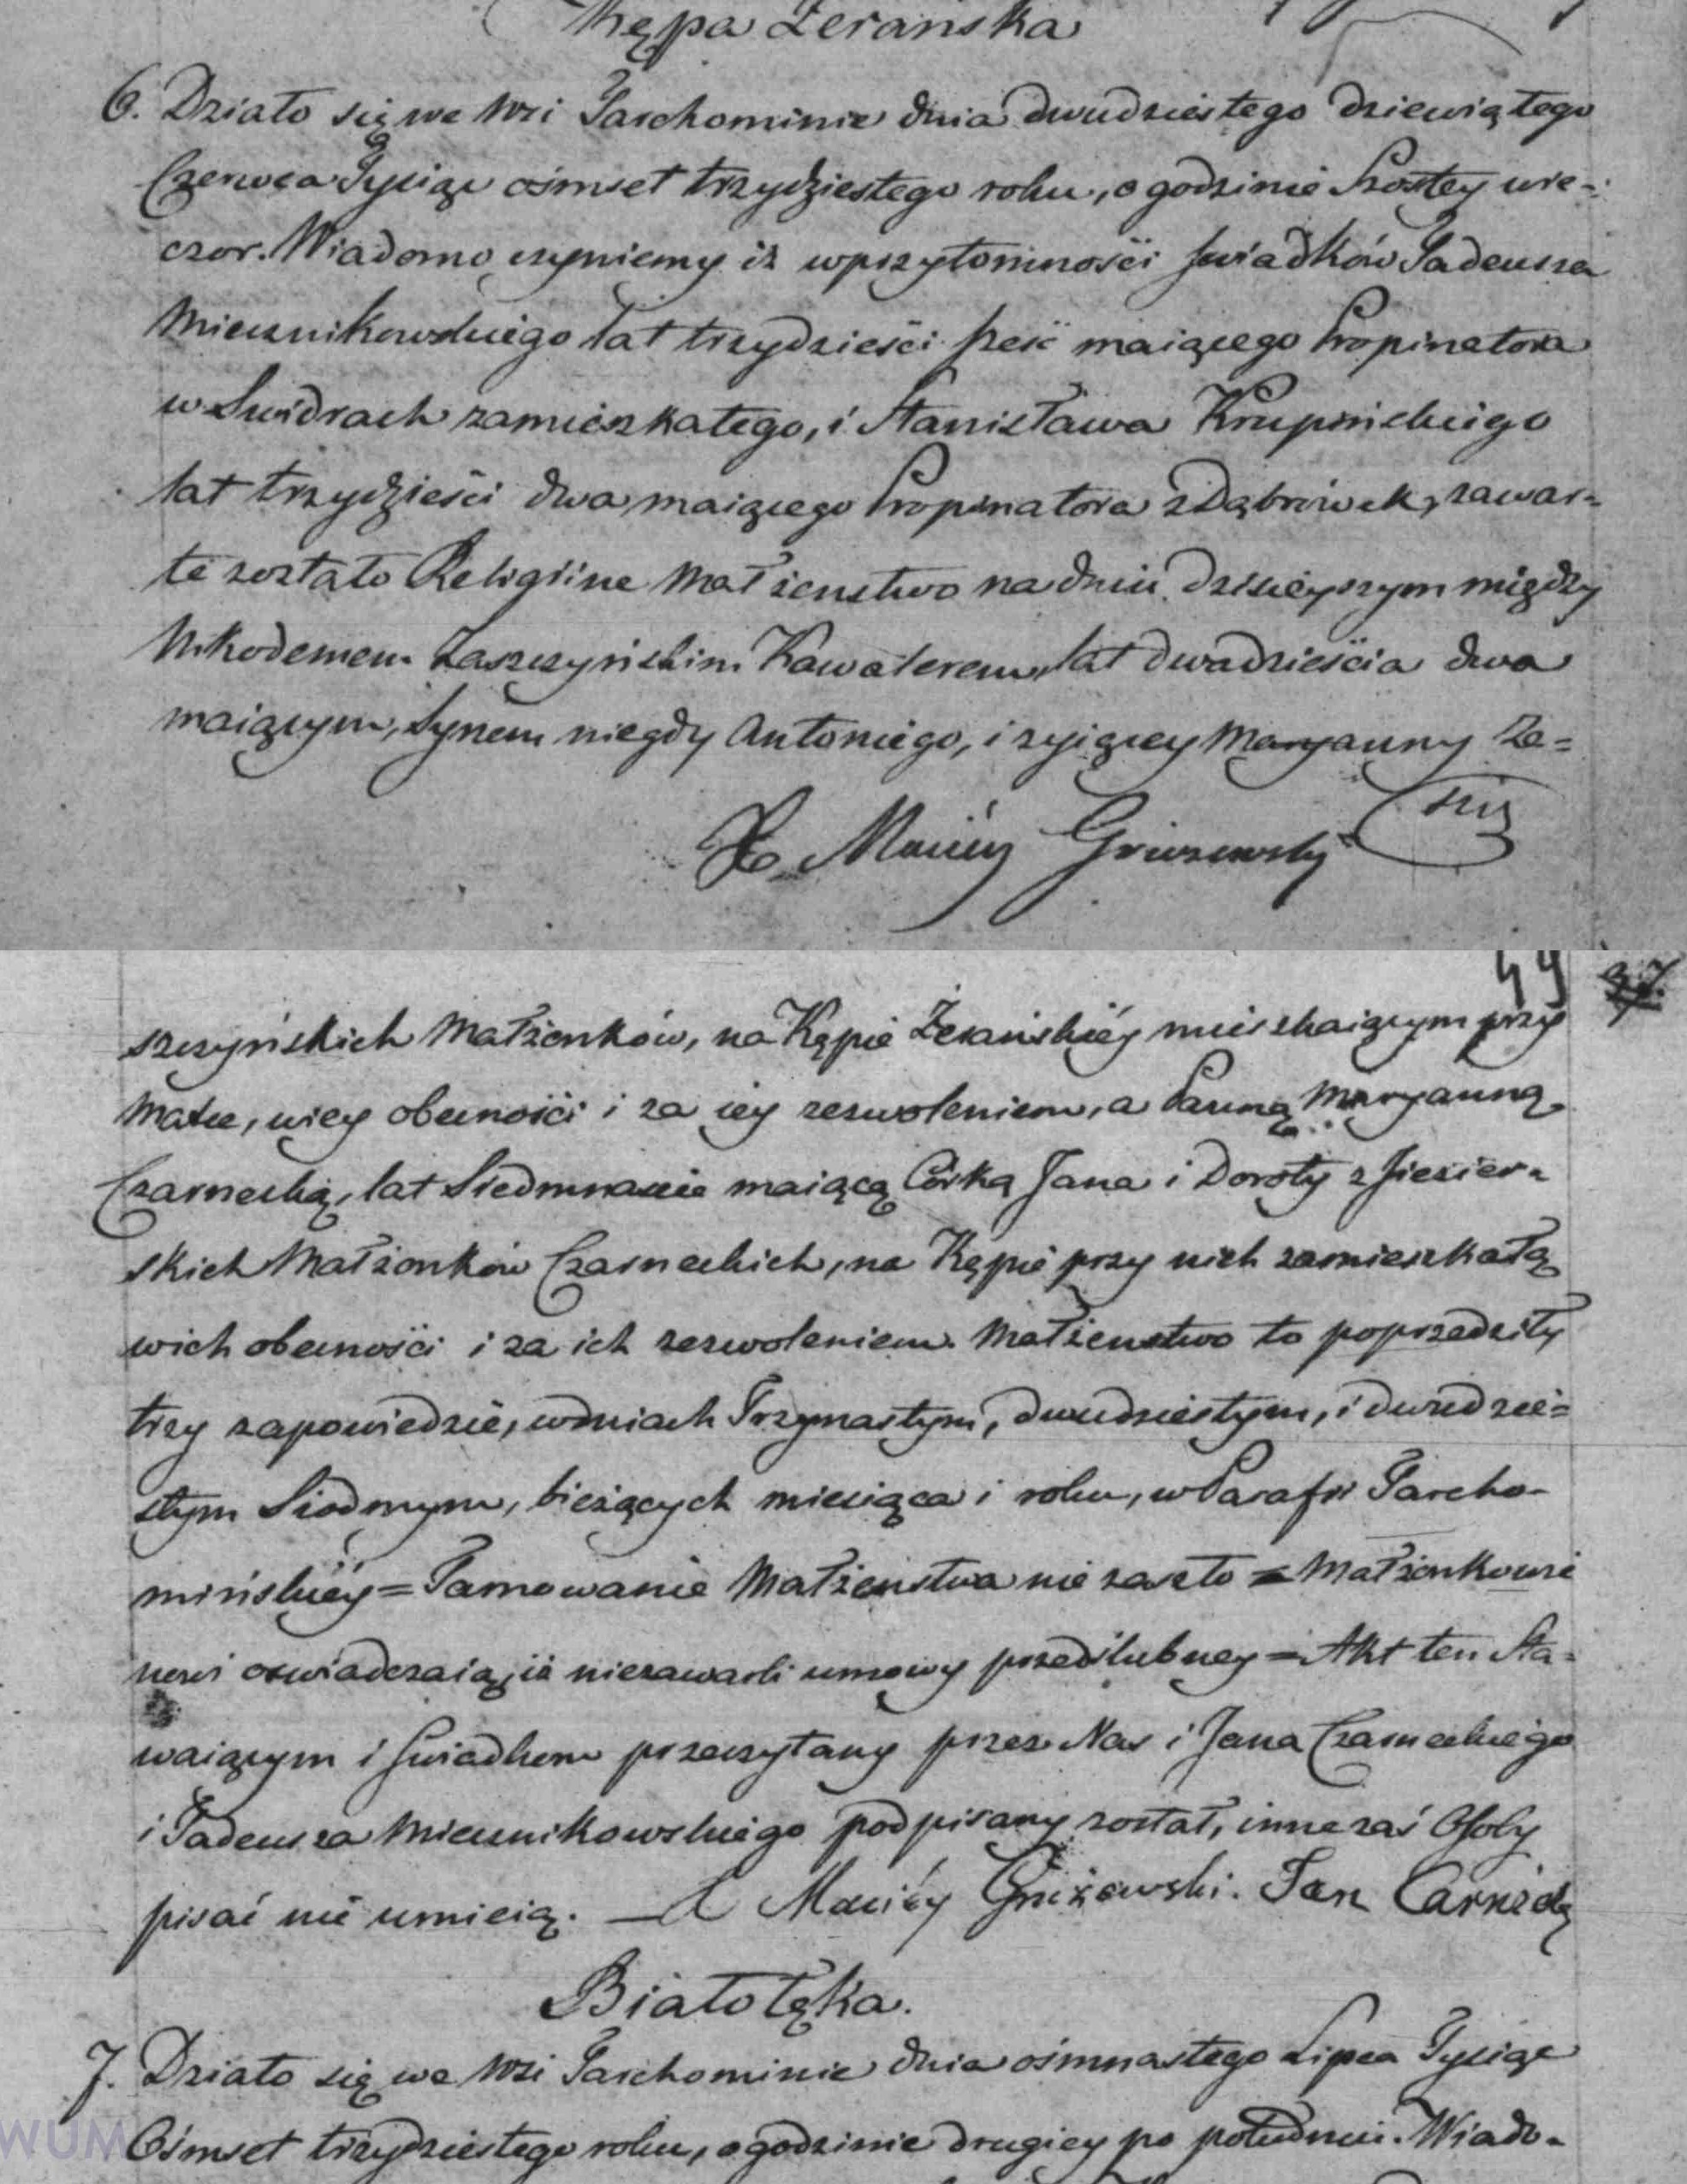 Kępa Żerańska
6. Działo się we Wsi Tarchominie dnia dwudziestego dziewiątego
Czerwca Tysiąc ośmset trzydziestego roku, o godzinie Szostey wie-
czor. Wiadomo czyniemy iż wprzytomności świadków Tadeusza
Miecznikowskiego lat trzydzieści sześć maiącego Propinatora
w Świdrach zamieszkałego, i Stanisława Krupińskiego
lat trzydzieści dwa maiącego Propinatora z Dąbrówek, zawar-
te zostało Religiine Małżenstwo na dniu dzisieyszym między
Nikodemem Zaszczyńskim Kawalerem, lat dwadzieścia dwa
maiącym, Synem niegdy Antoniego, i zyiącey Maryanny Za=
X. Maciéy
szczyńskich Małżonków, na Kępie Żerańskiéy mieszkaiącym przy
Matce, wiey obecności i za iey zezwoleniem, a Panną Maryanną
Czarnecką, lat Siedmnaście maiącą Córką Jana i Doroty z Jezier-
skich Małżonków Czarneckich, na Kępie przy nich zamieszkałą
wich obecności i za ich zezwoleniem. Małżenstwo to poprzedziły
trzy zapowiedzie, wdniach Trzynastym, dwudziestym, i dwudzie=
stym Siodmym, bieżących miesiąca i roku, w Parafii Tarcho-
mińskiéy = Tamowanie Małżenstwa nie zaszło = Małżonkowie
nowi oswiadczaią, iż niezawarli umowy przedślubney = Akt ten Sta-
waiącym i świadkom przeczytany przez Nas i Jana Czarneckiego
i Tadeusza Miecznikowskiego podpisany został, inne zaś Osoby
pisać nie umieią. — X Maciéy Gniżewski. Jan
Białołęka.
7. Działo się we Wsi Tarchominie dnia ośmnastego Lipca Tysiąc
Ośmset trzydziestego roku, o godzinie drugiey po południu. Wiado-
WUM